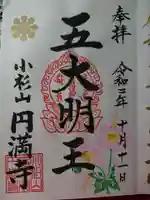 奉拝
令和二年十月十一日
五大明王
小杉山
円満寺